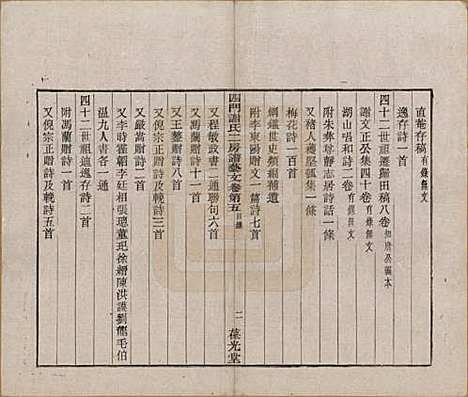 直菴存稿有錄無文
逸存詩一首
四十二世祖遷歸田稿八卷
謝文正公集四十卷有錄無文
湖山唱和詩二卷有錄無文
附朱彝尊靜志居詩話一條
又褚人穫堅瓠集一條
梅花詩一百首
綱鑑世史類編補遺
附李東陽贈文一篇詩七首
四門謝氏二房譜藝文卷第五目錄
二
葆光堂
又程敏政書二通聯句六首
又馮蘭贈詩十一首
又王鏊贈詩二首
又倪宗正贈詩及輓詩三首
又嚴嵩贈詩二首
又李時翟鑾李廷相張璁董玘徐縉陳洪謨劉龍毛伯
溫九人書各一通
四十二世祖迪逸存詩三首
附馮蘭贈詩一首
又倪宗正贈詩及輓詩五首